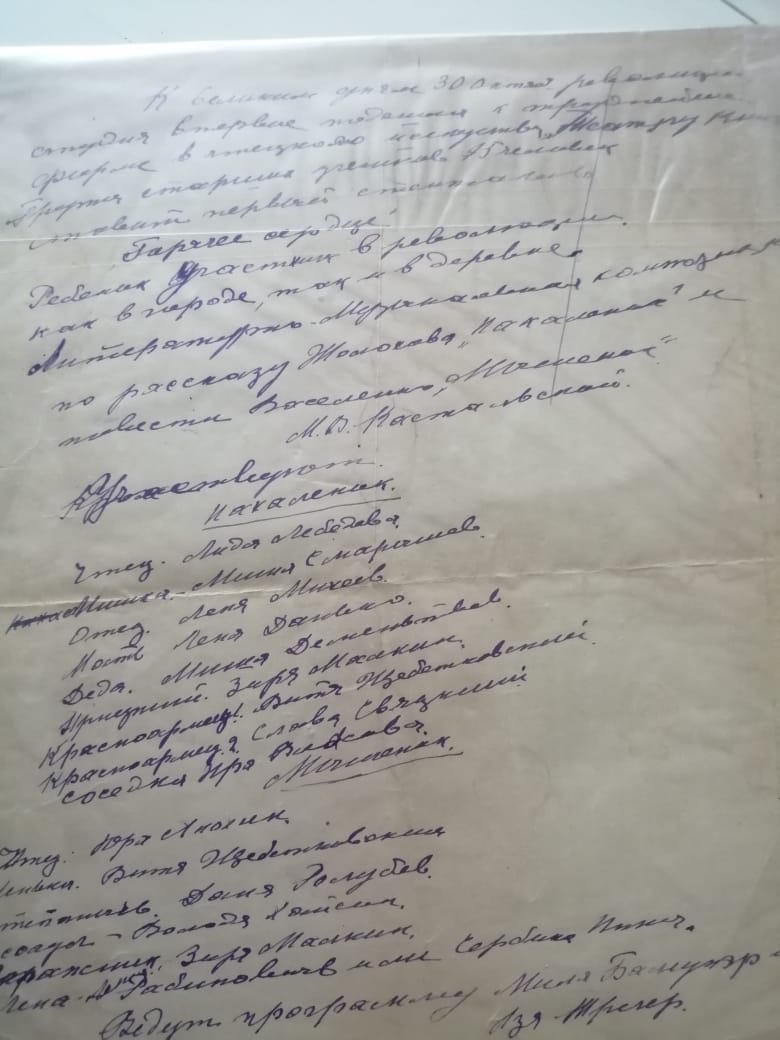 К великим дням 30 Октяб революции
студия впервые подошла к труднейшей
форме чтецкого искусства „Театру
Группа старших учеников 15 человек
ставит первый спектакль
Горячее сердце!
Ребенок участник в революции
как в городе, так и в деревне.
Литературно-Музыкальная композиция
по рассказу Шолохова „Нахаленок" и
повести Василенко „Мышонок"
М.В. Кастальской.
Участвуют.
Нахаленок.
Чтец. Лида Лебедева
Мишка - Миша Смарышев.
Отец. Леня Михеев.
Мать Леня Данько.
Деда. Миша Дементьев.
Приезжий. Зиря Малкин.
Красноармеец 1. Витя Щебетковский
Красноармец 2. Слава Свяцкий
соседка Ира Власова.
Мышонок.
Чтец. Юра Анохин.
Витя Щебетковский
Даня Голубев.
Володя
Зиря Малкин.
Рабинович или Сербина
Ведут программу Миля
Изя Трегер.